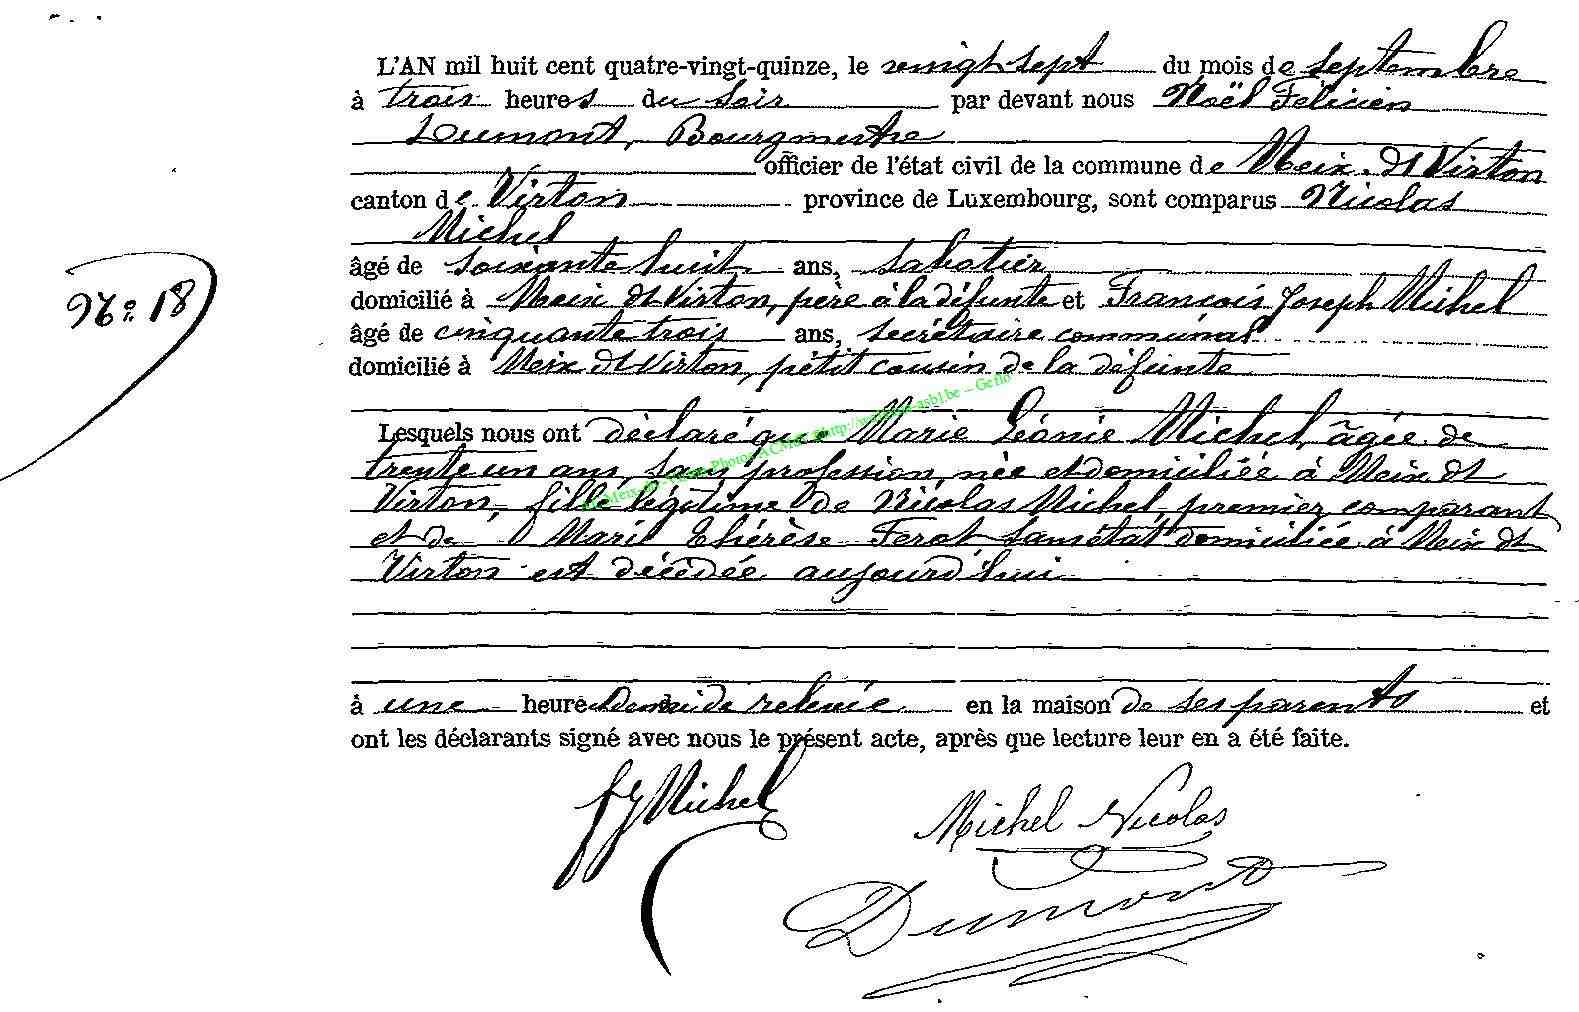 L'AN mil huit cent quatre-vingt-quinze, le vingt sept du mois de septembre
à trois heures du soir par devant nous Noël Félicien
Dumont, Bourgmestre
officier de l'état civil de la commune de Meix dt Virton
canton de Virton province de Luxembourg, sont comparus Nicolas
Michel
âgé de soixante huit ans, sabotier
domicilié à Meix dt Virton, père à la défunte et François Joseph Michel
N° 18
âgé de cinquante trois ans, secrétaire communal
domicilié à Meix dt Virton, petit cousin de la défunte
Lesquels nous ont déclaré que Marie Léonie Michel, âgée de
trente un ans, sans profession, née et domiciliée à Meix dt
Virton, fille légitime de Nicolas Michel, premier comparant
et de Marie Thérèse Ferot sans état domiciliée à Meix dt
Virton est décédée aujourd'hui
à une heure demi de relevée en la maison de ses parents et
ont les déclarants signé avec nous le présent acte, après que lecture leur en a été faite.
fJ Michel
Michel Nicolas
Dumont